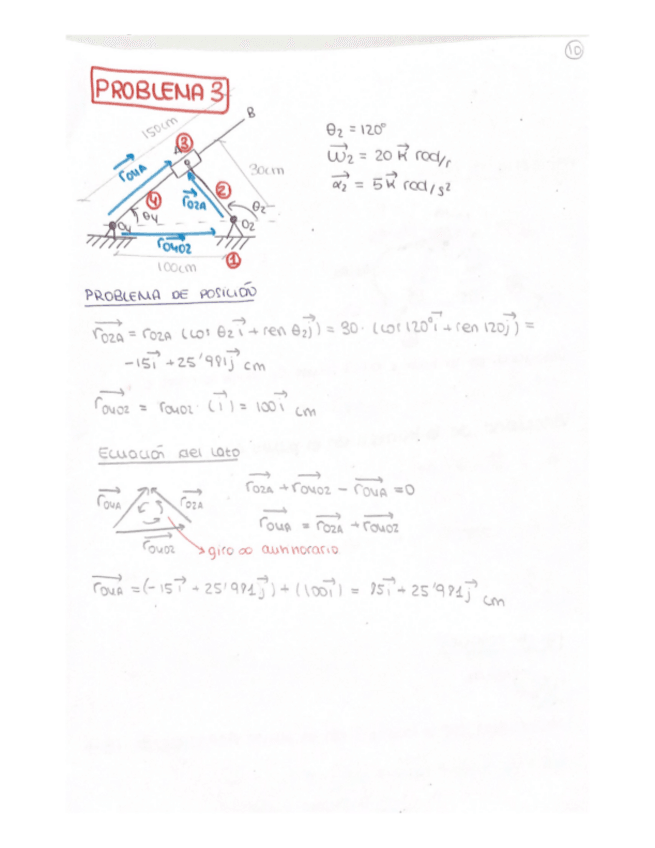 10
PROBLEMA 3
B
150cm
A
3
rO4A
30cm
2
4
rO2A
θ2
θ4
O4
O2
rO4O2
1
100cm
θ2 = 120°
ω2 = 20 k rad/s
α2 = 5 k rad/s²
PROBLEMA DE POSICIÓN
rO2A = rO2A (cos θ2 i + sen θ2 j) = 30 · (cos 120° i + sen 120 j) =
-15 i + 25'981 j cm
rO4O2 = rO4O2 · (i) = 100 i cm
ECUACIÓN DEL LAZO
rO4A
rO2A
rO4O2
giro ∞ antihorario
rO2A + rO4O2 - rO4A = 0
rO4A = rO2A + rO4O2
rO4A = (-15 i + 25'981 j) + (100 i) = 85 i + 25'981 j cm